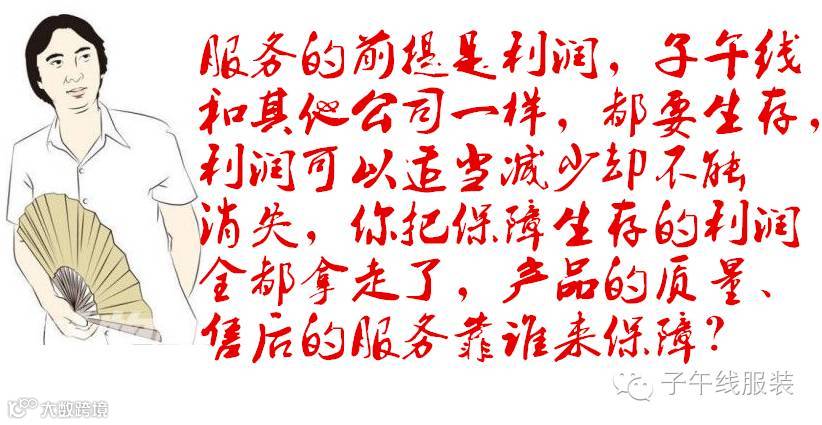 服务的前提是利润，子午线
和其他公司一样，都要生存，
利润可以适当减少却不能
消失，你把保障生存的利润
全都拿走了，产品的质量、
售后的服务靠谁来保障？
子午线服装
大数跨境